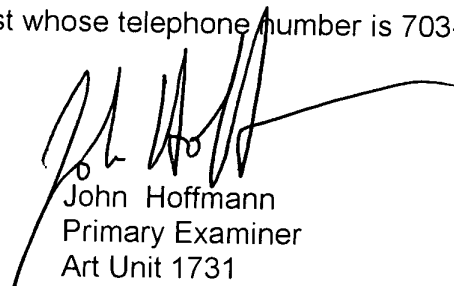 st whose telephone number is 703-
John Hoffmann
Primary Examiner
Art Unit 1731